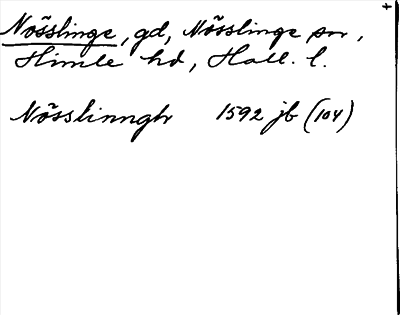 Nösslinge, gd, Nösslinge sn,
Himle hd, Hall. l.
Nösslinngh 1592 jb (104)